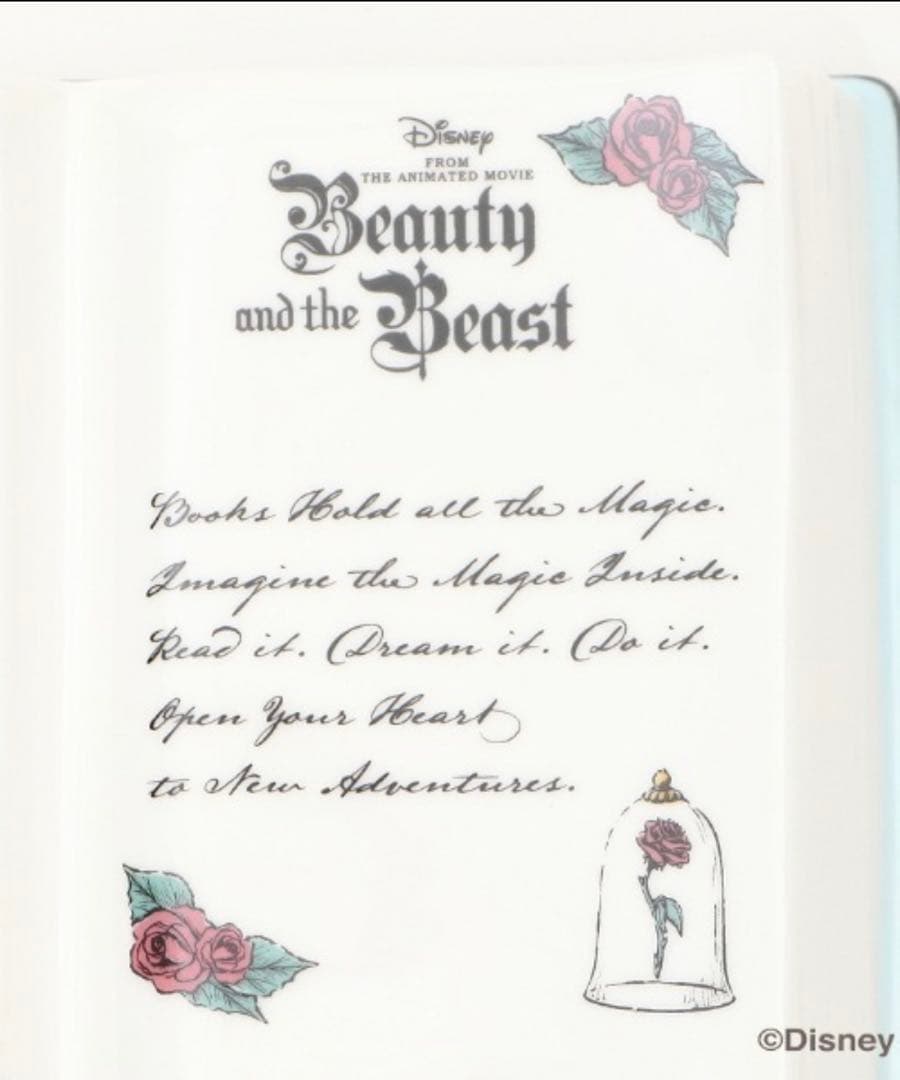 Disney
FROM
THE ANIMATED MOVIE
Beauty
and the Beast
Books Hold all the Magic.
Imagine the Magic Inside.
Read it. Dream it. Do it.
Open Your Heart
to New Adventures.
©Disney